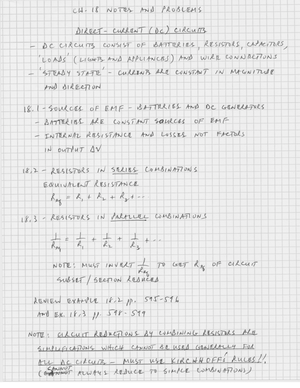 CH. 18 NOTES AND PROBLEMS
DIRECT-CURRENT (DC) CIRCUITS
- DC CIRCUITS CONSIST OF BATTERIES, RESISTORS, CAPACITORS,
'LOADS' (LIGHTS AND APPLIANCES) AND WIRE CONNECTIONS
- 'STEADY STATE' - CURRENTS ARE CONSTANT IN MAGNITUDE
AND DIRECTION
18.1 - SOURCES OF EMF - BATTERIES AND DC GENERATORS
- BATTERIES ARE CONSTANT SOURCES OF EMF
- INTERNAL RESISTANCE AND LOSSES NOT FACTORS
IN OUTPUT ΔV
18.2 - RESISTORS IN SERIES COMBINATIONS
EQUIVALENT RESISTANCE
Req = R1 + R2 + R3 + ...
18.3 - RESISTORS IN PARALLEL COMBINATIONS
1/Req = 1/R1 + 1/R2 + 1/R3 + ...
NOTE: MUST INVERT 1/Req TO GET Req OF CIRCUIT
SUBSET / SECTION REDUCED
REVIEW EXAMPLE 18.2 pp. 595-596
AND EX. 18.3 pp. 598-599
NOTE: CIRCUIT REDUCTIONS BY COMBINING RESISTORS ARE
SIMPLIFICATIONS WHICH CANNOT BE USED GENERALLY FOR
ALL DC CIRCUITS - MUST USE KIRCHHOFF'S RULES!!
(CANNOT ALWAYS REDUCE TO SIMPLE COMBINATIONS)